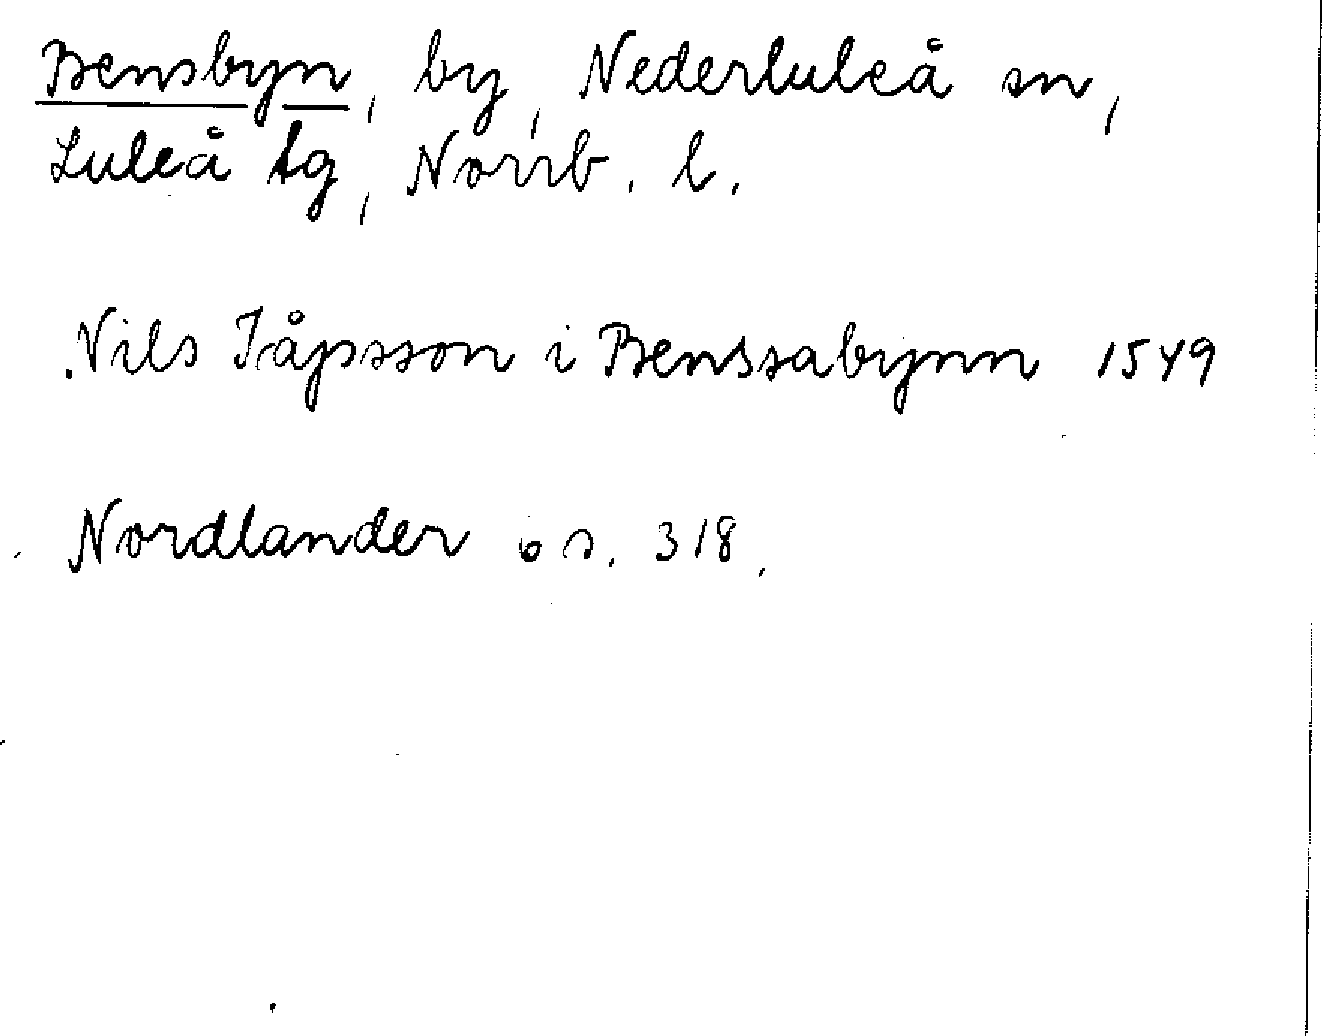 Bensbyn, by, Nederluleå sn,
Luleå tg, Norrb. l.
Nils Jåpsson i Benssabynn 1549
Nordlander 6 s. 318.